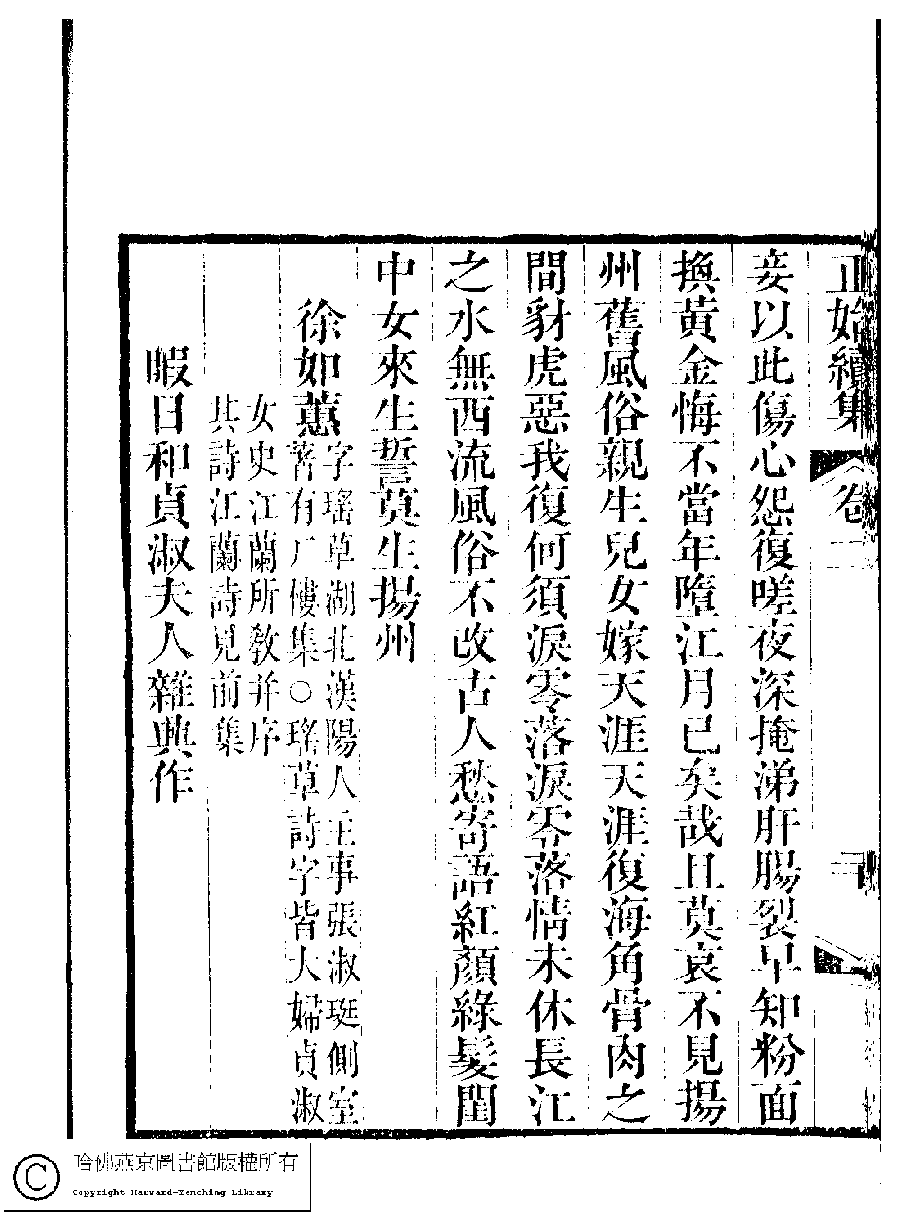 正始續集 卷二
妾以此傷心怨復嗟夜深掩涕肝腸裂早知粉面
換黃金悔不當年墮江月已矣哉且莫哀不見揚
州舊風俗親生兒女嫁天涯天涯復海角骨肉之
間豺虎惡我復何須淚零落淚零落情未休長江
之水無西流風俗不改古人愁寄語紅顏綠髮閨
中女來生誓莫生揚州
徐如蕙
字瑤草湖北漢陽人主事張淑珽側室
著有广慺集○瑤草詩字皆大婦貞淑
女史江蘭所教幷序
其詩江蘭詩見前集
暇日和貞淑夫人雜興作
哈佛燕京圖書館版權所有
Copyright Harvard-Yenching Library